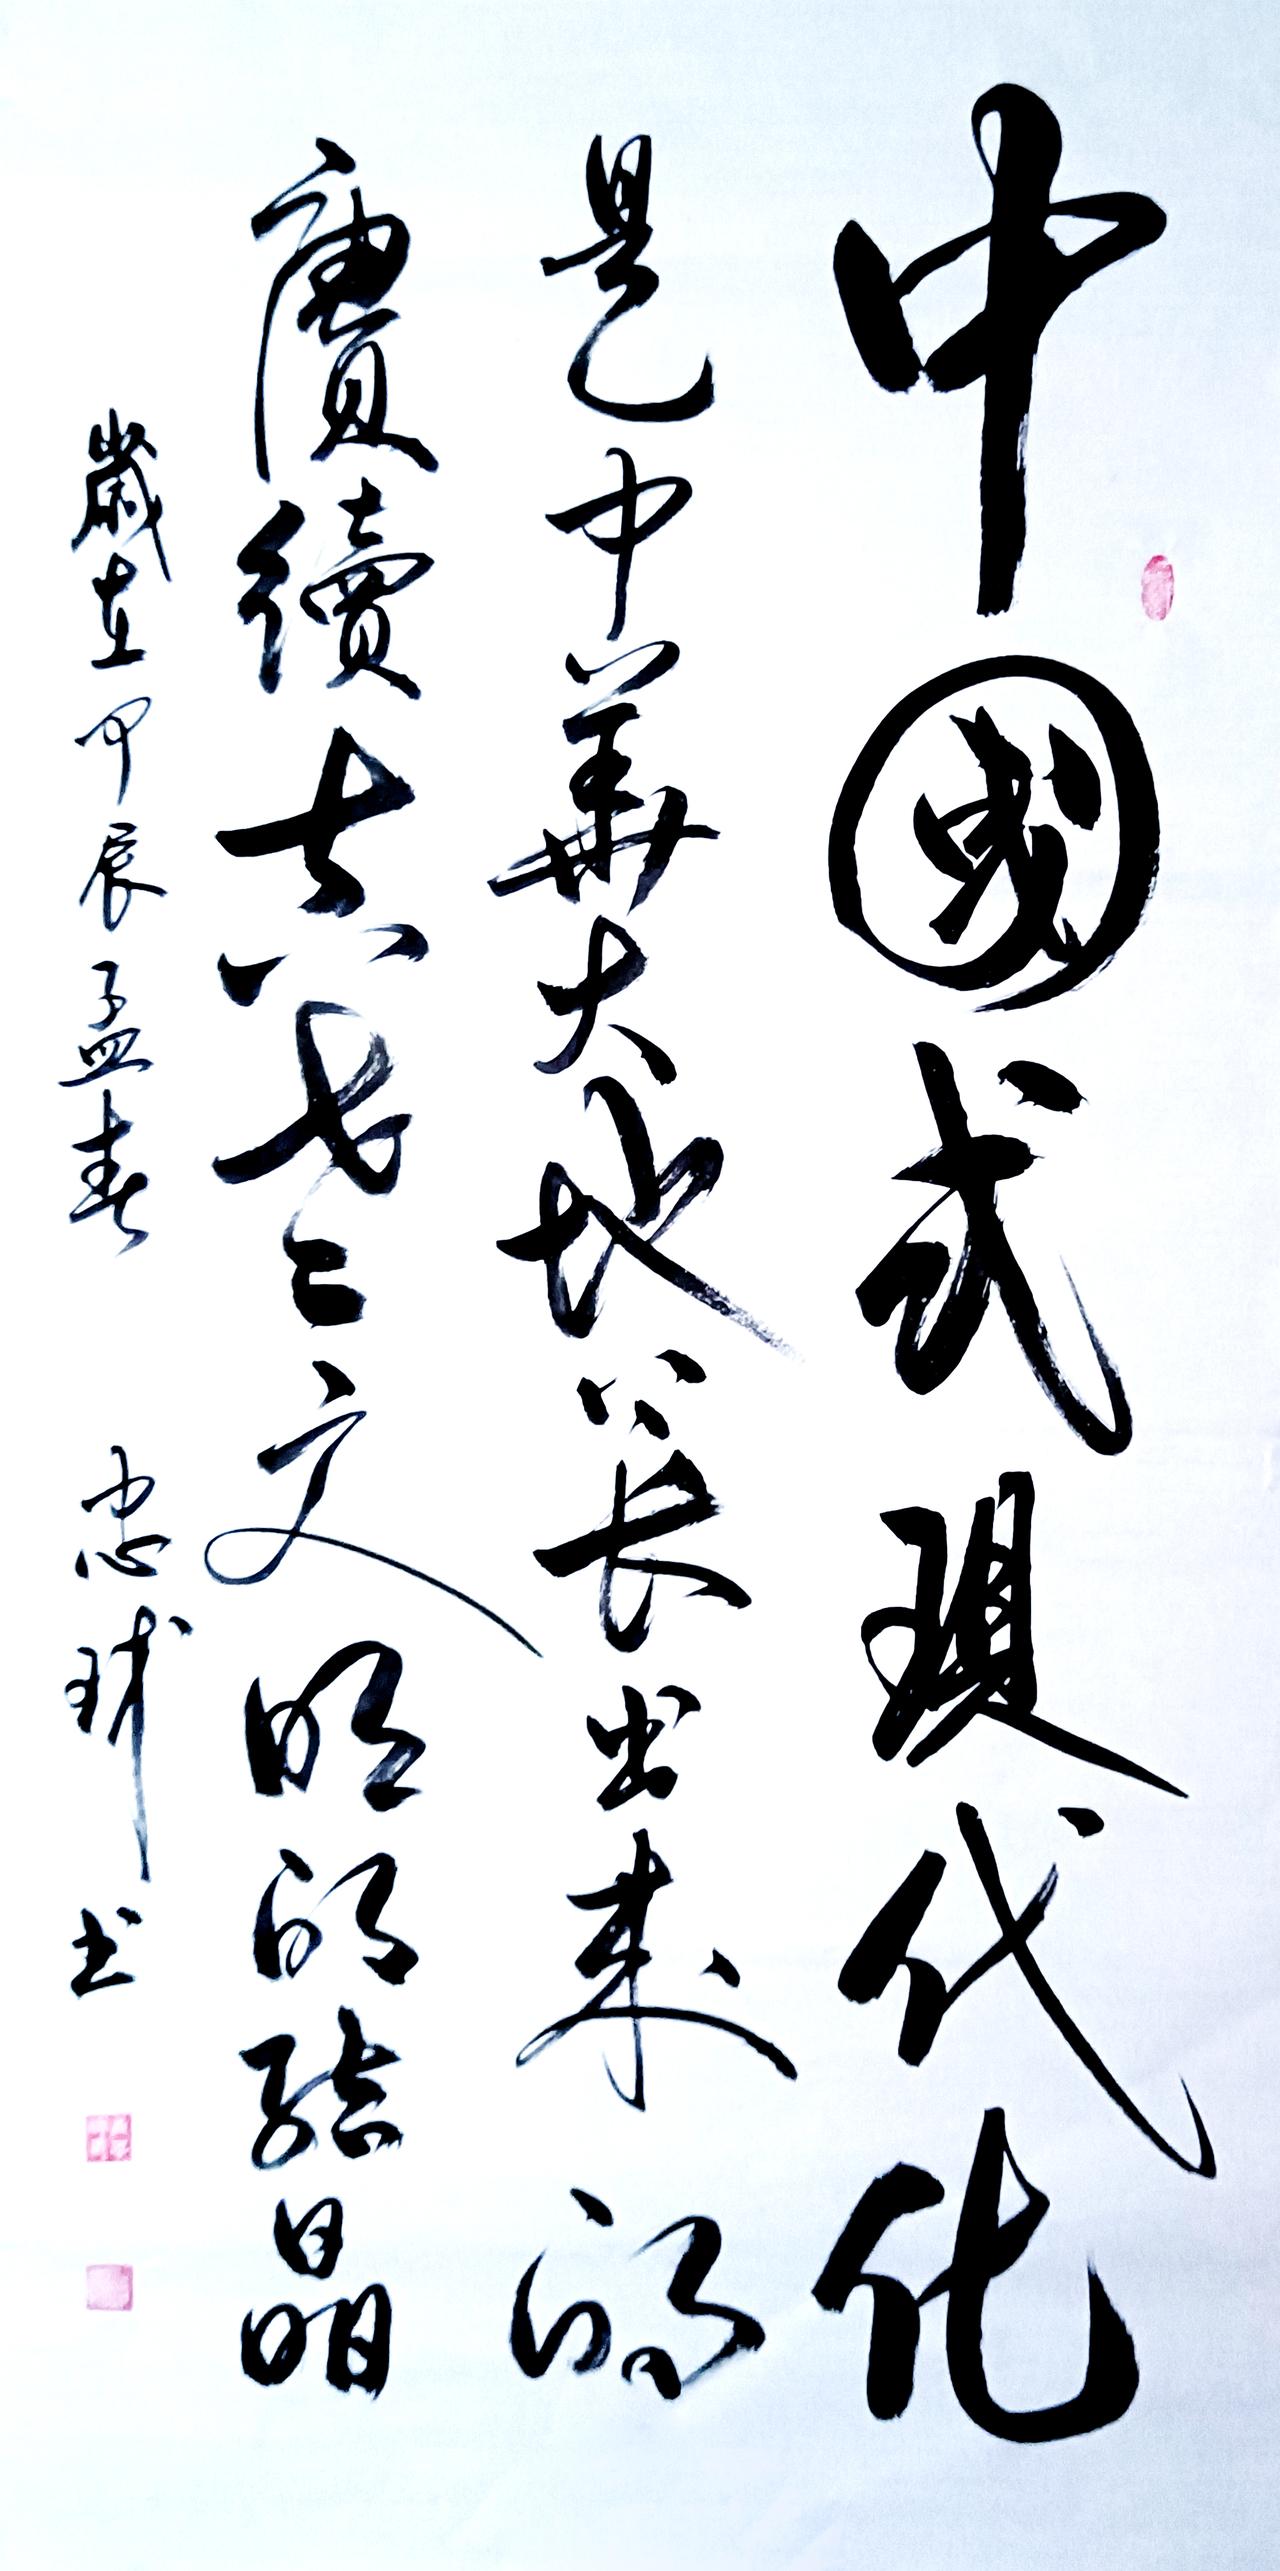 中國式現代化
是中華大地长出來的
賡續古老文明的結晶
歲在甲辰孟春 忠 书